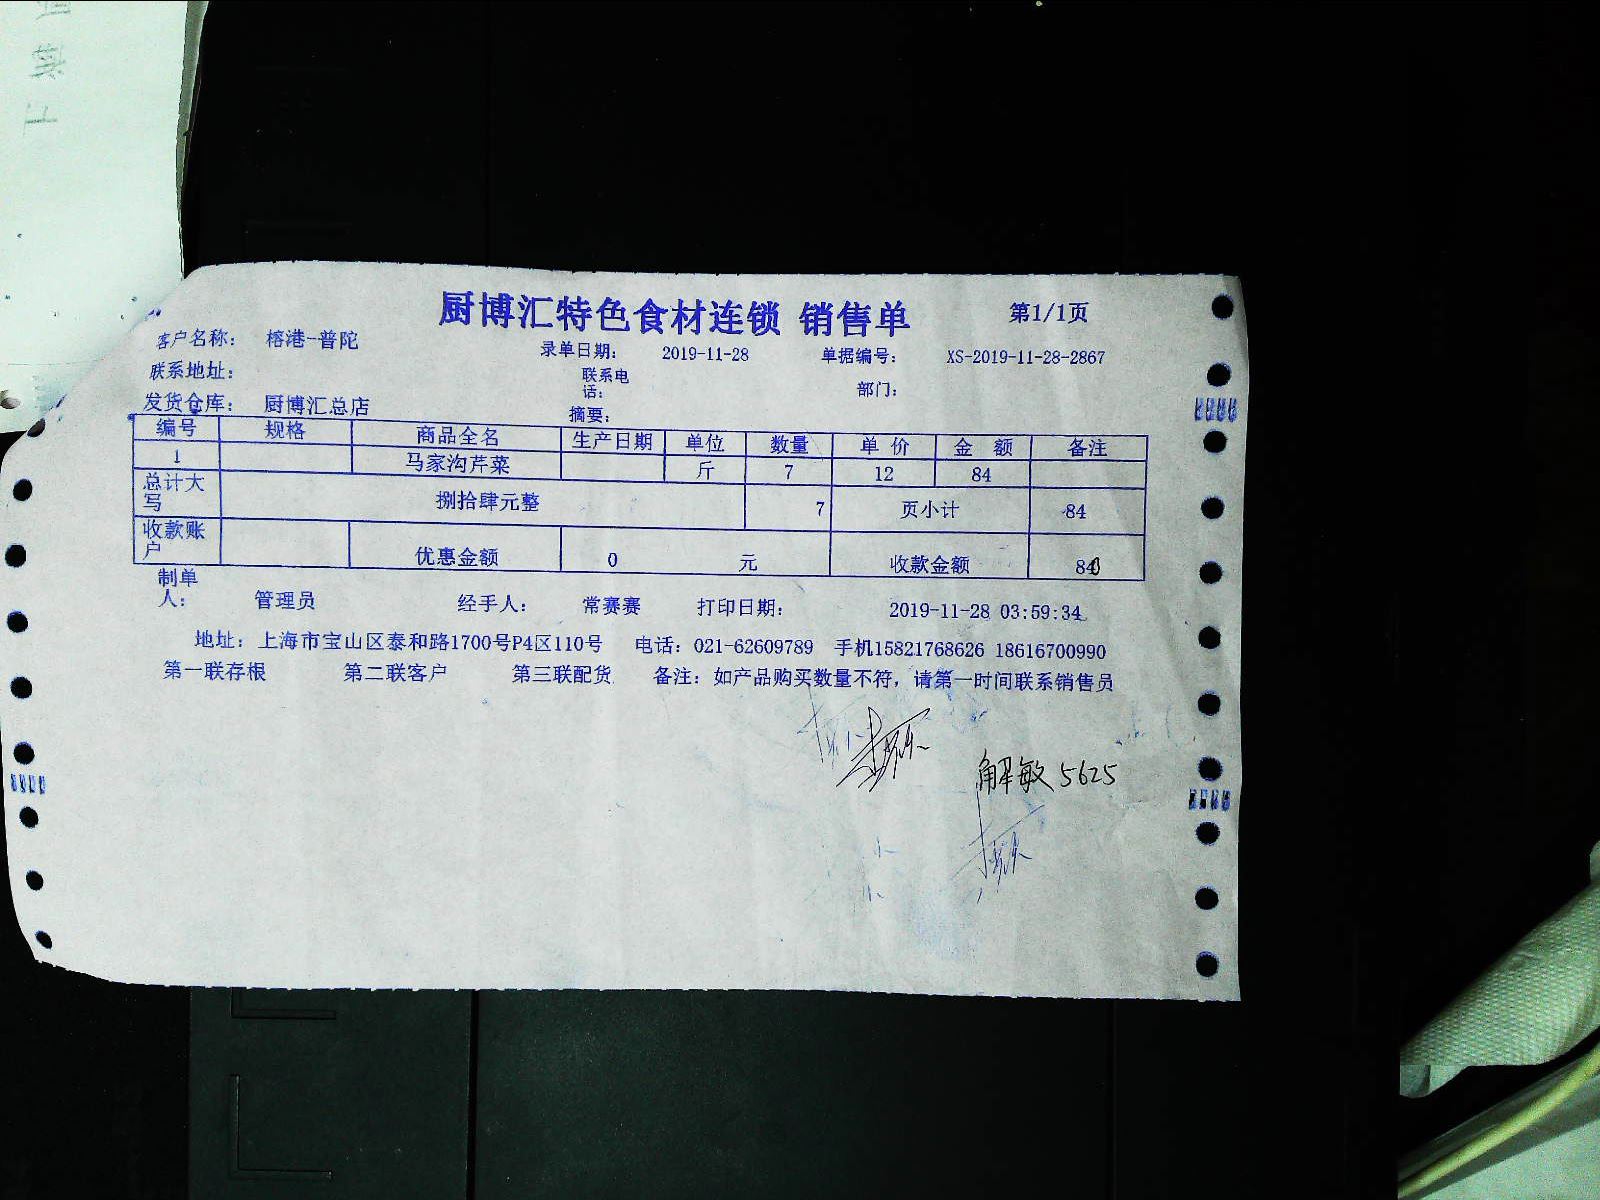 厨博汇特色食材连锁 销售单 第1/1页
客户名称： 榕港-普陀 录单日期： 2019-11-28 单据编号： XS-2019-11-28-2867
联系地址： 联系电话： 部门：
发货仓库： 厨博汇总店 摘要：
编号 规格 商品全名 生产日期 单位 数量 单价 金额 备注
1 马家沟芹菜 斤 7 12 84
总计大写 捌拾肆元整 7 页小计 84
收款账户 优惠金额 0 元 收款金额 84
制单人： 管理员 经手人： 常赛赛 打印日期： 2019-11-28 03:59:34
地址：上海市宝山区泰和路1700号P4区110号 电话：021-62609789 手机15821768626 18616700990
第一联存根 第二联客户 第三联配货 备注：如产品购买数量不符，请第一时间联系销售员
解敏 5625